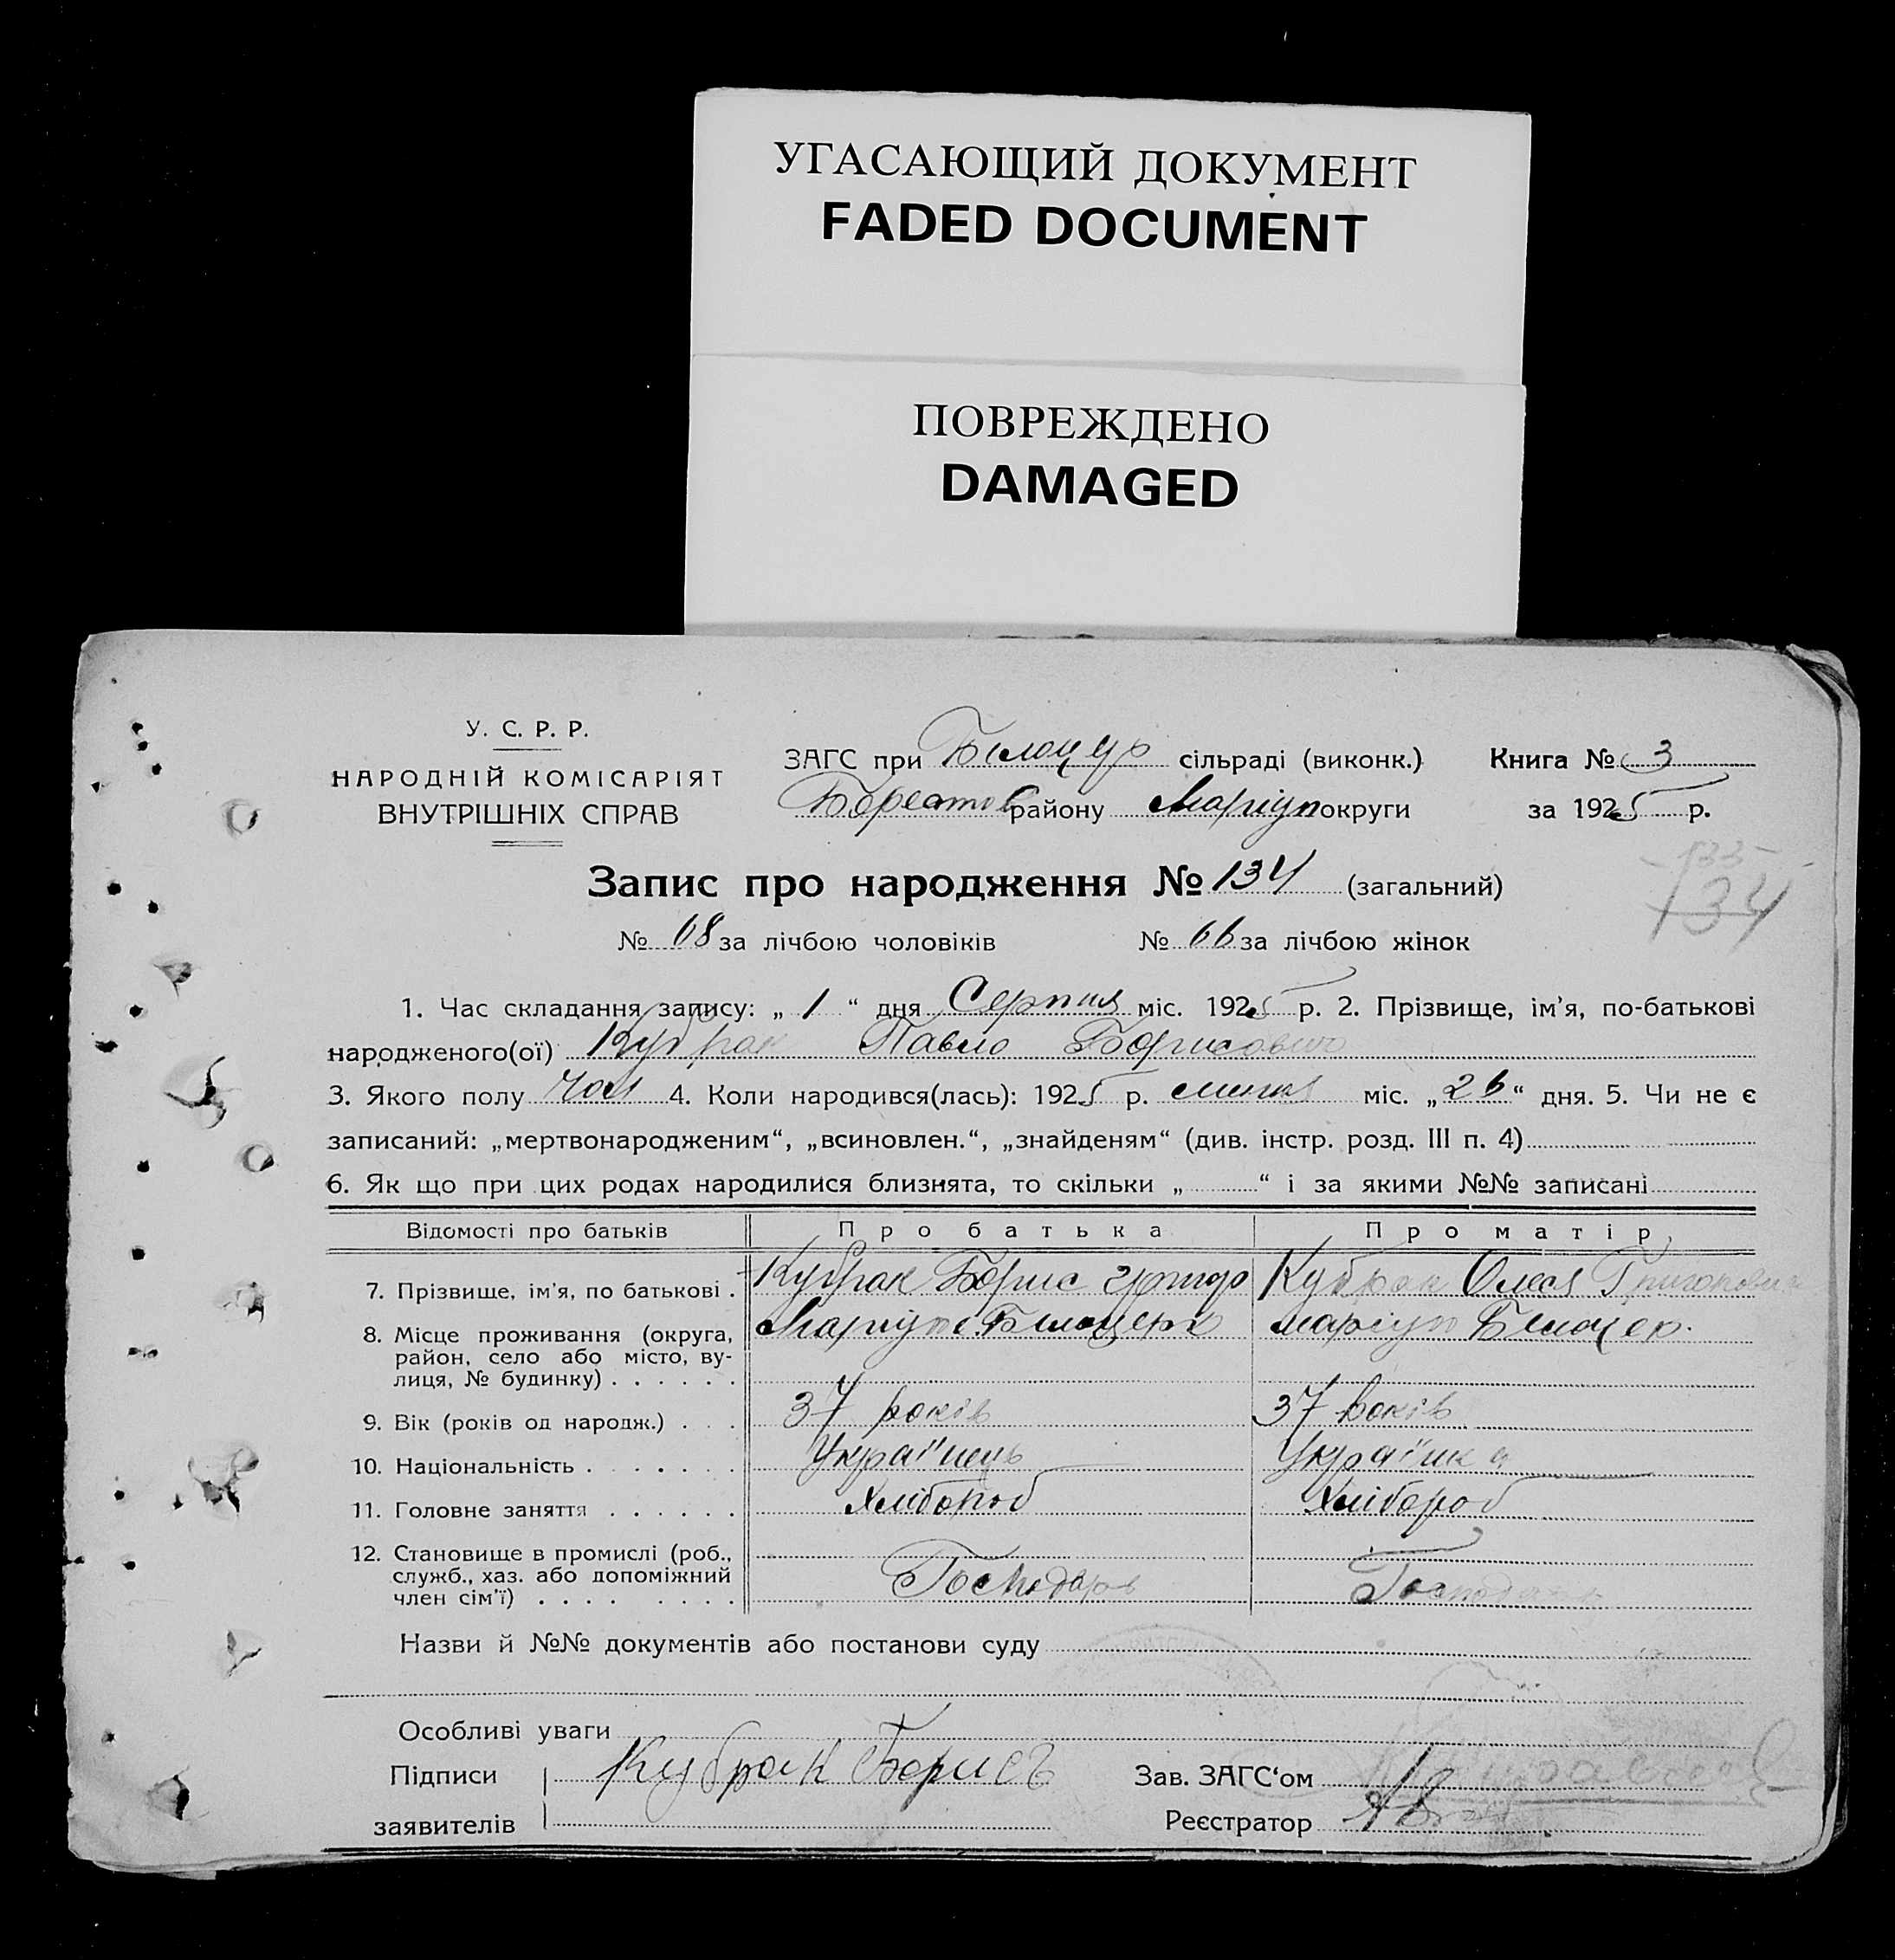 УГАСАЮЩИЙ ДОКУМЕНТ
FADED DOCUMENT
ПОВРЕЖДЕНО
DAMAGED
У. С. Р. Р.
НАРОДНІЙ КОМІСАРІЯТ
ВНУТРІШНІХ СПРАВ
ЗАГС при Білоцер сільраді (виконк.)
района Маріуп округи
Книга № 3
за 1925 р.
Запис про народження № 134 (загальний)
133
134
№ 68 за лічбою чоловіків № 66 за лічбою жінок
1. Час складання запису: „ 1 “ дня Серпня міс. 1925 р. 2. Прізвище, ім’я, по-батькові
народженого(ої) Кубрак Павло Борисович
3. Якого полу Чол 4. Коли народився(лась): 1925 р. липня міс. „ 26 “ дня. 5. Чи не є
записаний: „мертвонародженим“, „всиновлен.“, „знайденям“ (див. інстр. розд. III п. 4)
6. Як що при цих родах народилися близнята, то скільки „ “ і за якими №№ записані
Відомості про батьків Про батька Про матір
7. Прізвище, ім’я, по батькові . Кубрак Борис Кубрак Олеся
8. Місце проживання (округа, Маріуп Білоцерк маріуп Білоцер.
район, село або місто, ву-
лиця, № будинку) . . . . . .
9. Вік (років од народж.) . . . 37 років 37 років
10. Національність . . . . . . . Українець Українка
11. Головне заняття . . . . . . Хлібороб Хлібороб
12. Становище в промислі (роб.,
служб., хаз. або допоміжний Господарь Господарь
член сім’ї) . . . . . . . .
Назви й №№ документів або постанови суду
Особливі уваги
Підписи Кубрак Борисъ Зав. ЗАГС‘ом
заявителів Реєстратор